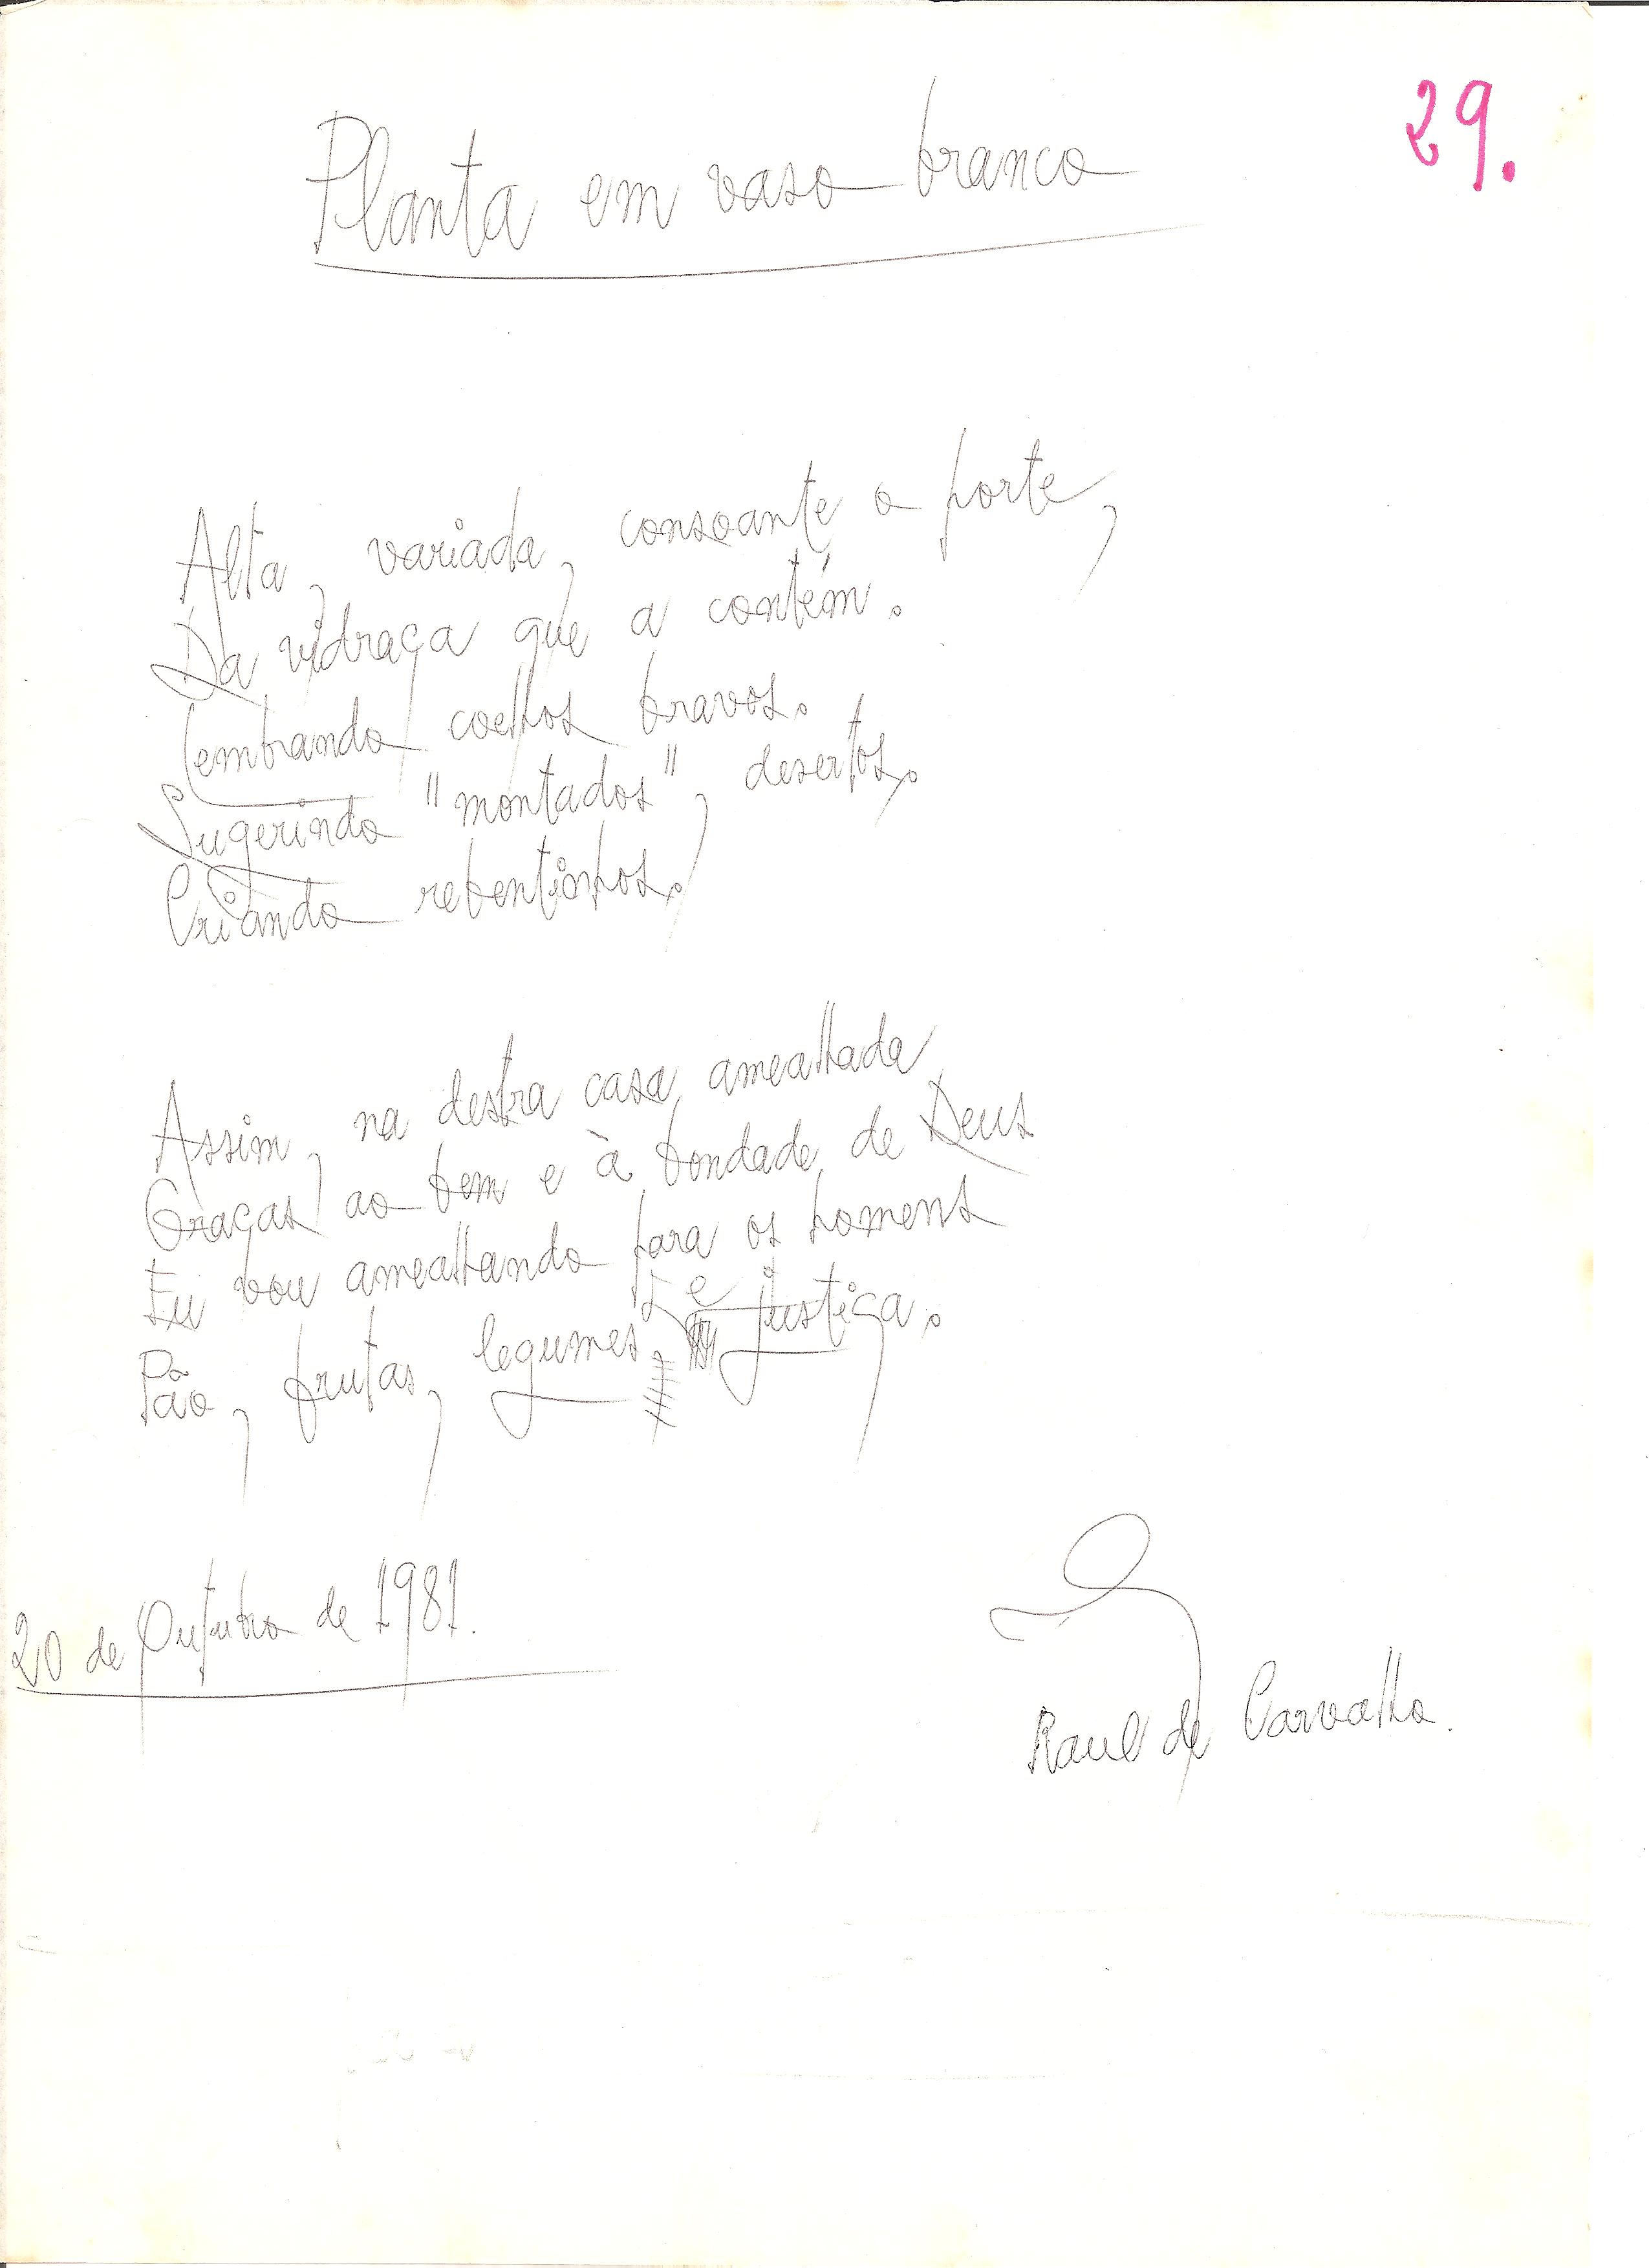 29.
Planta em vaso branco
Alta, variada, consoante o porte,
Da vidraça que a contém.
Lembrando coelhos bravos.
Sugerindo "montados", desertos.
Criando rebentinhos.
Assim, na destra casa, amealhada
Graças ao bem e à bondade de Deus
Eu vou amealhando para os homens
Pão, frutas, legumes e justiça.
20 de Outubro de 1981.
Raul de Carvalho.